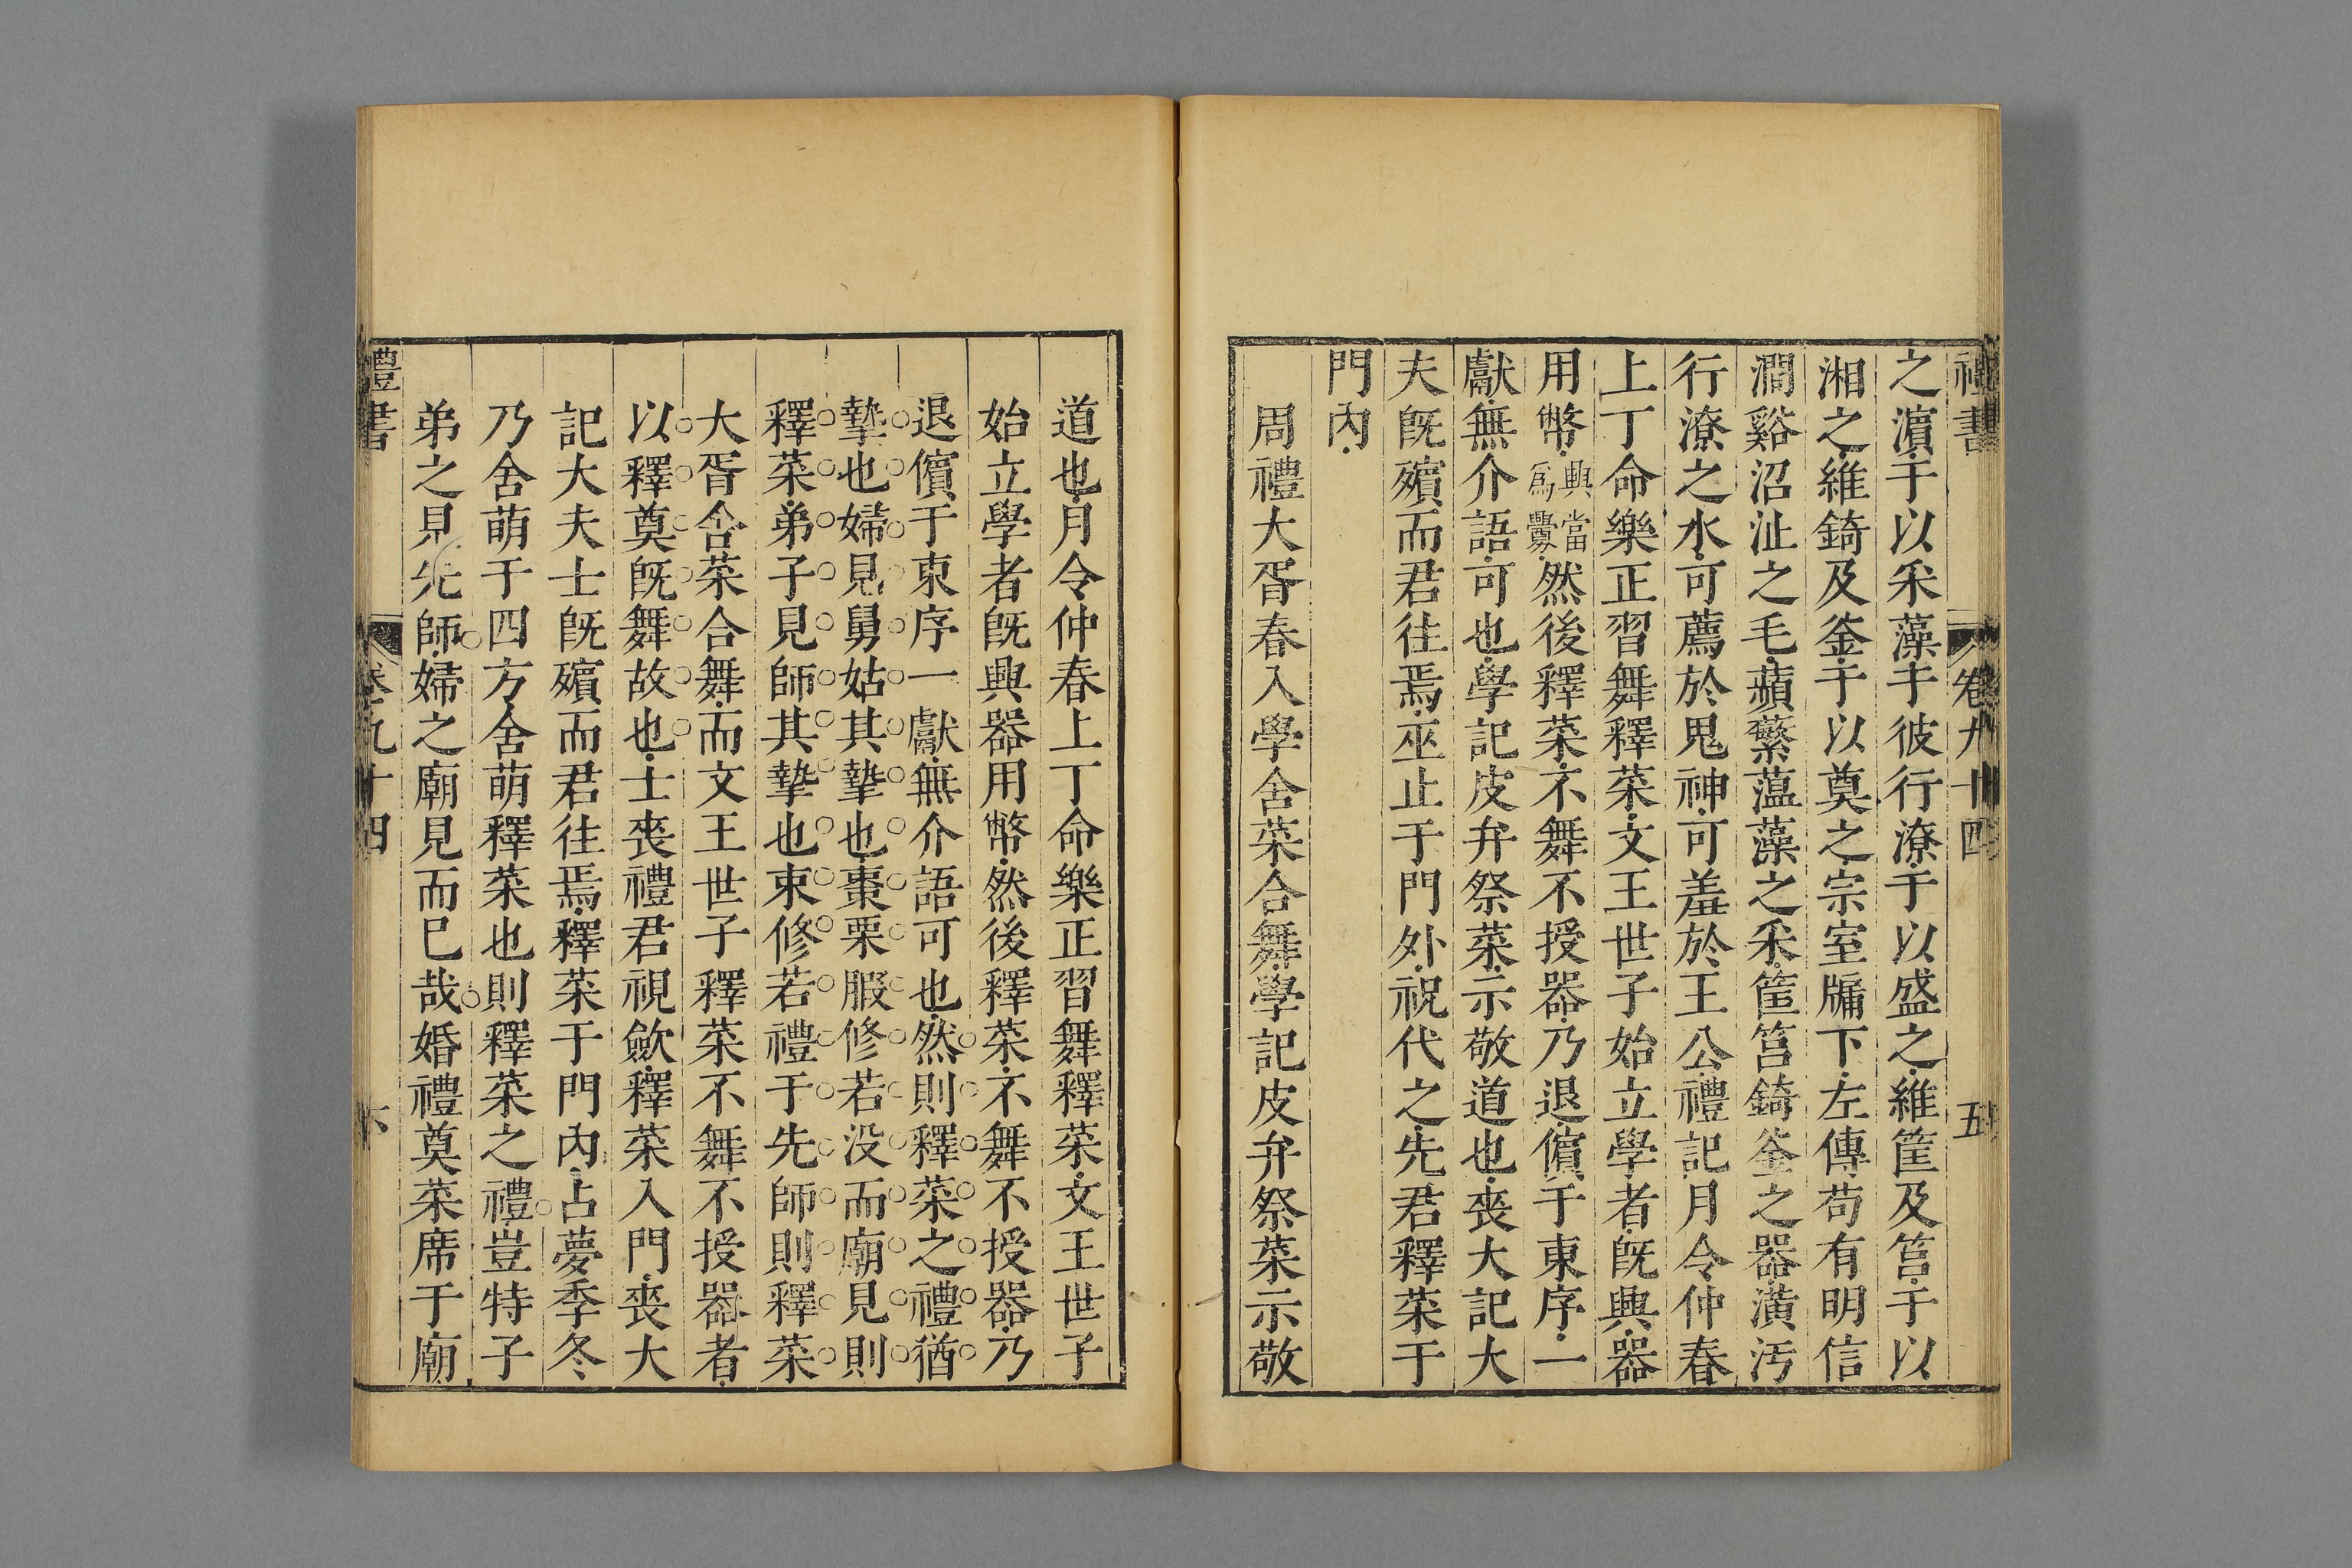 禮書 卷九十四 五
之濵于以采藻于彼行潦于以盛之維筐及筥于以
湘之維錡及釜于以奠之宗室牖下左傳苟有明信
澗谿沼沚之毛蘋蘩薀藻之采筐筥錡釜之器潢汙
行潦之水可薦於鬼神可羞於王公禮記月令仲春
上丁命樂正習舞釋菜文王世子始立學者旣興器
用幣興當爲釁然後釋菜不舞不授器乃退儐于東序一
獻無介語可也學記皮弁祭菜示敬道也喪大記大
夫旣殯而君往焉巫止于門外祝代之先君釋菜于
門內
周禮大胥春入學舍菜合舞學記皮弁祭菜示敬
道也月令仲春上丁命樂正習舞釋菜文王世子
始立學者旣興器用幣然後釋菜不舞不授器乃
退儐于東序一獻無介語可也然則釋菜之禮猶
摯也婦見舅姑其摯也棗栗腶修若没而廟見則
釋菜弟子見師其摯也束修若禮于先師則釋菜
大胥舍菜合舞而文王世子釋菜不舞不授器者
以釋奠旣舞故也士喪禮君視歛釋菜入門喪大
記大夫士旣殯而君往焉釋菜于門內占夢季冬
乃舍萌于四方舍萌釋菜也則釋菜之禮豈特子
弟之見先師婦之廟見而巳哉婚禮奠菜席于廟
禮書 卷九十四